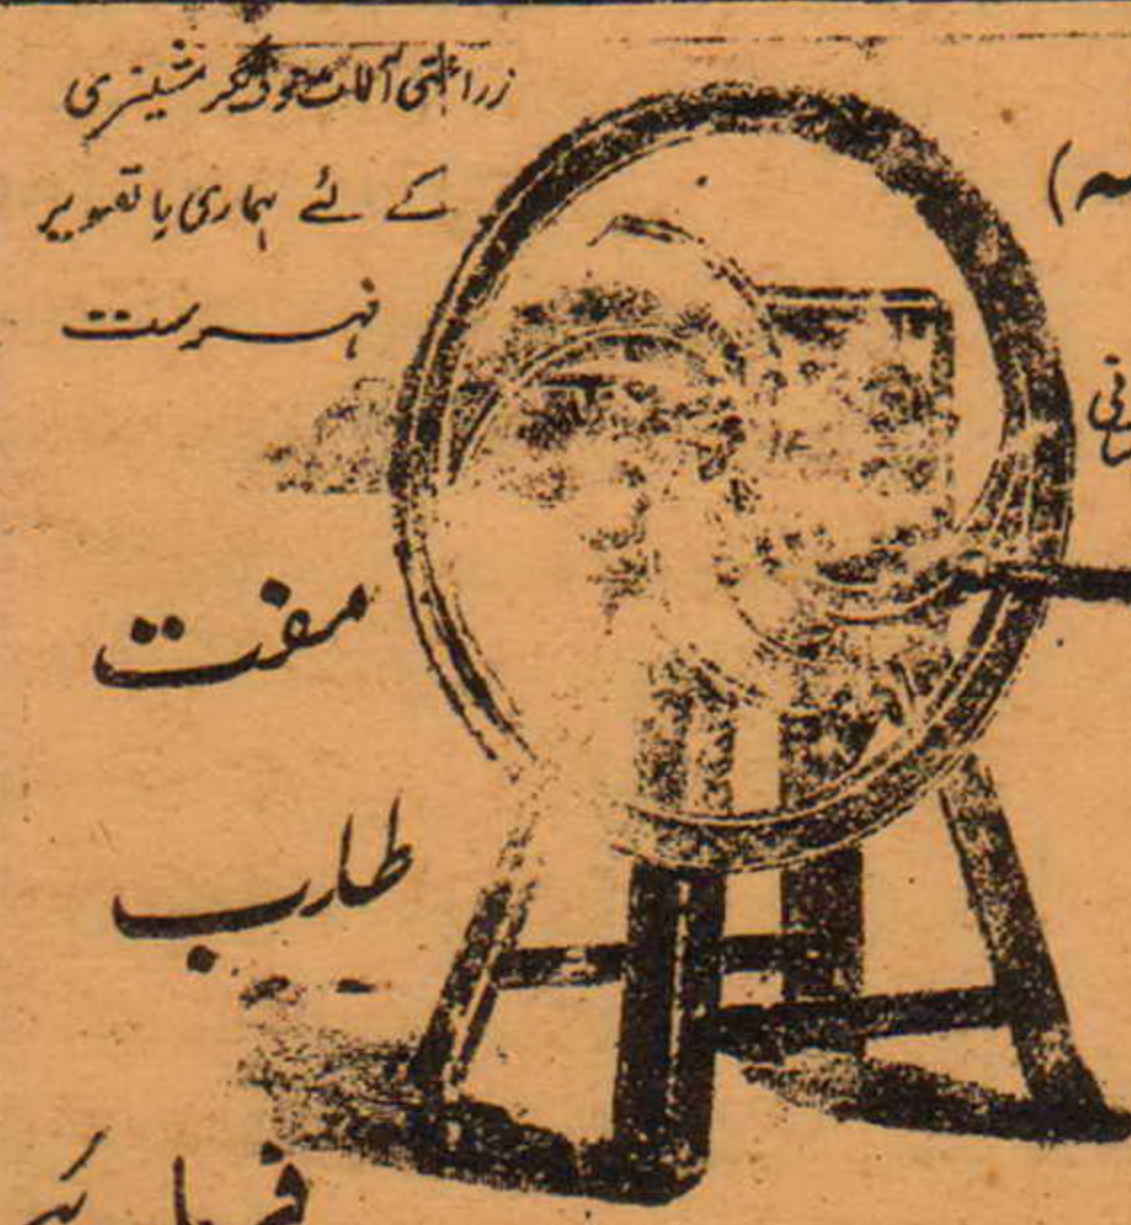 زراعتی آلات و دیگر مشینری
کے لئے ہماری باتصویر
فہرست
مفت
طلب
فرمایئے